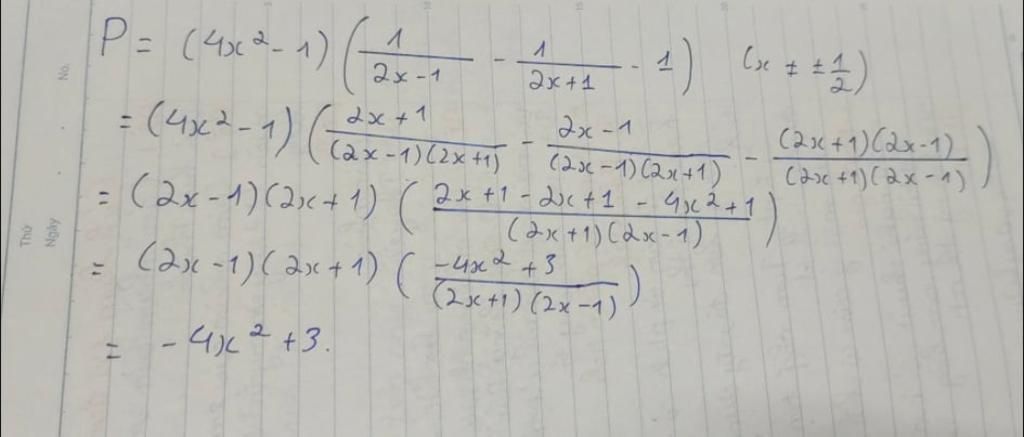 No.
Thứ
Ngày
P = (4x² - 1) ( 1/(2x - 1) - 1/(2x + 1) - 1 ) (x ≠ ± 1/2)
= (4x² - 1) ( (2x + 1)/((2x - 1)(2x + 1)) - (2x - 1)/((2x - 1)(2x + 1)) - ((2x + 1)(2x - 1))/((2x + 1)(2x - 1)) )
= (2x - 1)(2x + 1) ( (2x + 1 - 2x + 1 - 4x² + 1)/((2x + 1)(2x - 1)) )
= (2x - 1)(2x + 1) ( (-4x² + 3)/((2x + 1)(2x - 1)) )
= -4x² + 3.